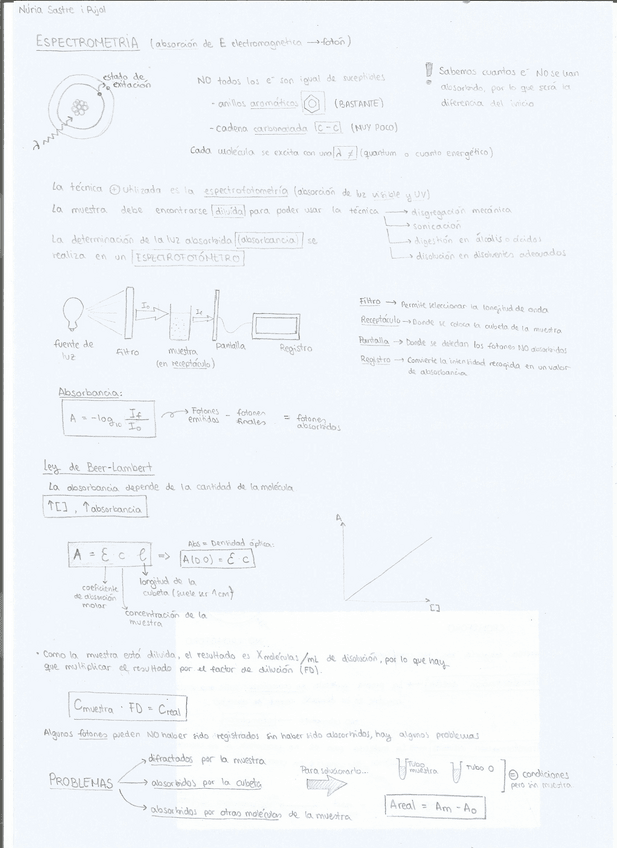 Núria Sastre i Pujol
ESPECTROMETRIA (absorción de E electromagnético → fotón)
estado de excitación
λ
NO todos los e⁻ son igual de receptibles
- anillos aromáticos (BASTANTE)
- cadena carbonada C-C (MUY POCO)
Cada molécula se excita con una λ ≠ (quantum = cuanto energético)
! Sabemos cuantos e⁻ NO se van
absorbiendo, por lo que será la
diferencia del inicio
La técnica ⊕ utilizada es la espectrofotometría (absorción de luz visible y UV)
La muestra debe encontrarse diluída para poder usar la técnica → disgregación mecánica
→ sonicación
→ digestión en álcalis = ácidos
→ disolución en disolventes adecuados
La determinación de la luz absorbida (absorbancia) se
realiza en un ESPECTROFOTÓMETRO
fuente de luz
Filtro
I₀
muestra
(en receptáculo)
If
pantalla
Registro
Filtro → Permite seleccionar la longitud de onda
Receptáculo → Donde se coloca la cubeta de la muestra
Pantalla → Donde se detectan los fotones NO absorbidos
Registro → Convierte la intensidad recogida en un valor
de absorbancia
Absorbancia:
A = -log₁₀ If/I₀ → Fotones emitidos - fotones finales = fotones absorbidos
Ley de Beer-Lambert
La absorbancia depende de la cantidad de la molécula
↑[], ↑absorbancia
Abs = Densidad óptica
A = ε c ℓ => A(DO) = ε c
coeficiente de absorción molar
longitud de la cubeta (suele ser 1cm)
concentración de la muestra
A
[]
· Como la muestra está diluida, el resultado es X moléculas/mL de disolución, por lo que hay
que multiplicar el resultado por el factor de dilución (FD).
Cmuestra · FD = Creal
Algunos fotones pueden NO haber sido registrados sin haber sido absorbidos, hay algunos problemas
PROBLEMAS
difractados por la muestra
absorbidos por la cubeta
absorbidos por otras moléculas de la muestra
Para solucionarlo...
TUBO muestra
TUBO 0
⊜ condiciones
pero sin muestra
Areal = Am - A₀